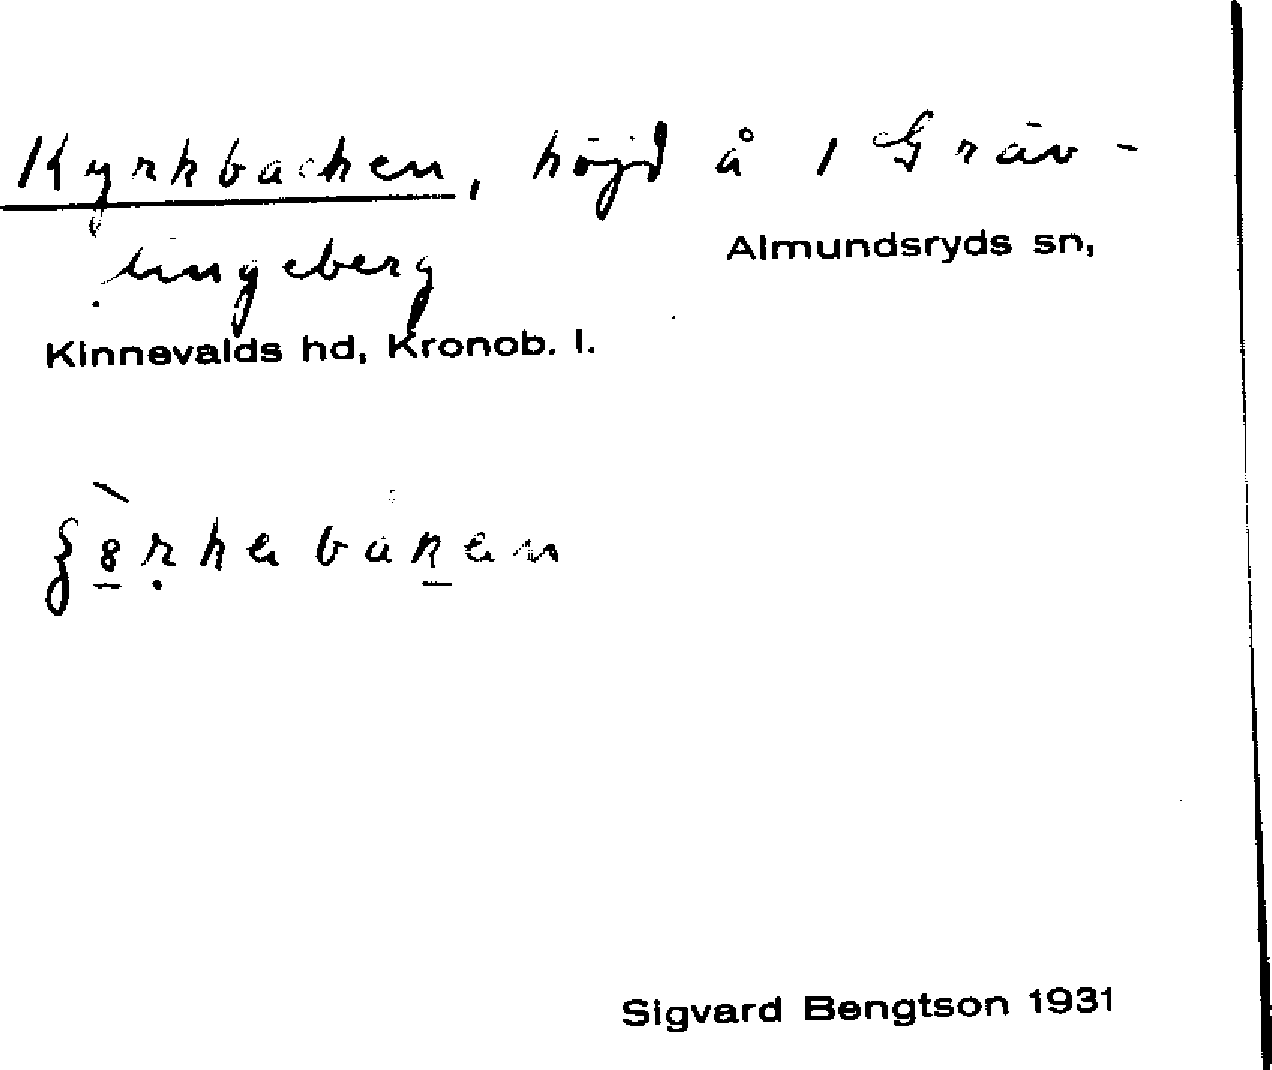 Kyrkbacken, höjd å 1 Gräv-
lingeberg
Almundsryds sn,
Kinnevalds hd, Kronob. l.
Sigvard Bengtson 1931